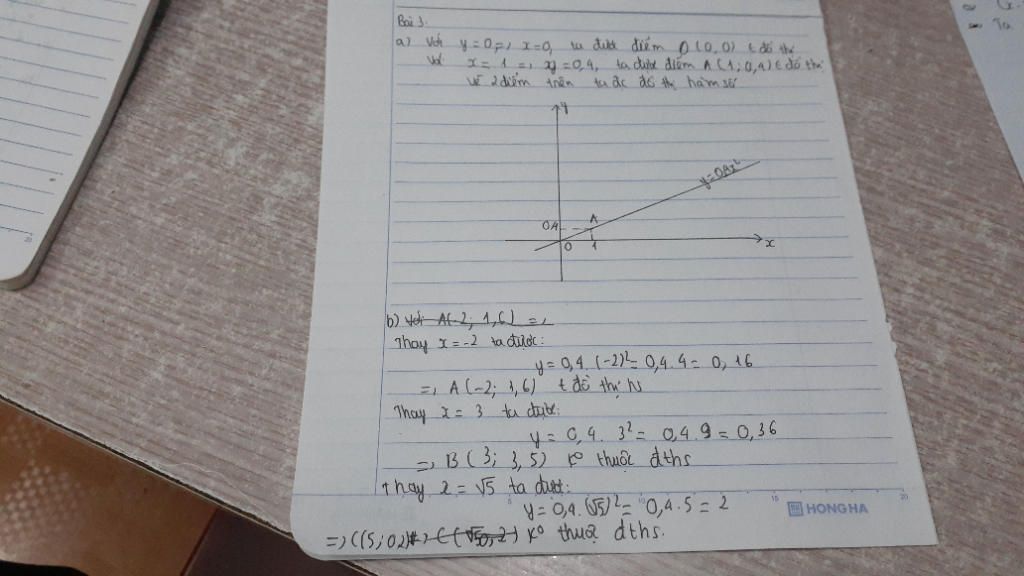 Bài 3.
a) Với y=0 => x=0, ta được điểm O(0,0) € đồ thị
Với x=1 => xy=0,4, ta được điểm A(1;0,4) € đồ thị
vẽ 2 điểm trên ta đc đồ thị hàm số
y
y=0,4x²
0,4
A
O
1
x
b) Với A(-2; 1,6) =>
Thay x=-2 ta được:
y=0,4.(-2)²=0,4.4=0,16
=> A(-2; 1,6) € đồ thị hs
Thay x=3 ta được:
y=0,4.3²=0,4.9=0,36
=> B(3; 3,5) k° thuộc đths
Thay 2=√5 ta được:
y=0,4.(√5)²=0,4.5=2
=> C(5;0,2) k° thuộc đths.
5
10
15
20
HONG HA
20